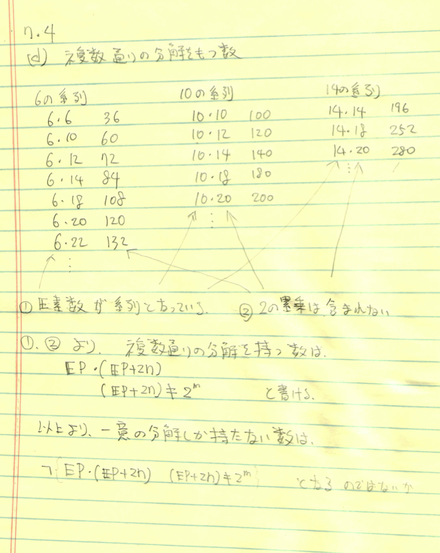 7.4
(d) 複数通りの分解をもつ数
6の系列 10の系列 14の系列
6・6 36 10・10 100 14・14 196
6・10 60 10・12 120 14・18 252
6・12 72 10・14 140 14・20 280
6・14 84 10・18 180 ⋮
6・18 108 10・20 200
6・20 120 ⋮
6・22 132
⋮
① 𝔼素数が系列となっている. ② 2の累乗は含まれない
①. ② より. 複数通りの分解を持つ数は.
𝔼P・(𝔼P+2n)
(𝔼P+2n)≠2ᵐ と書ける.
以上より、一意の分解しか持たない数は.
¬(𝔼P・(𝔼P+2n) (𝔼P+2n)≠2ᵐ) となるのではないか